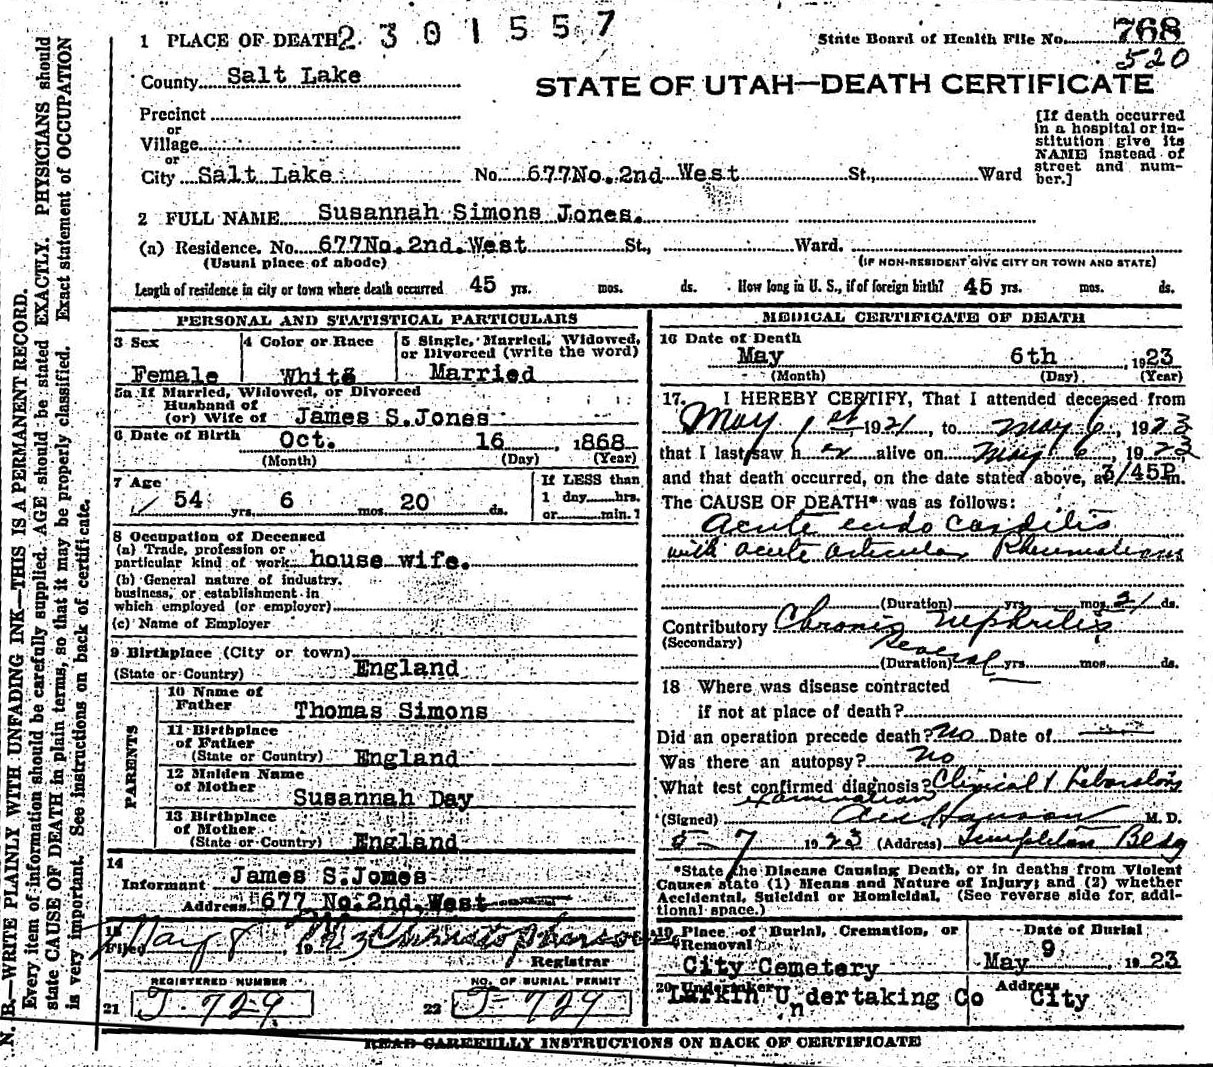 1 PLACE OF DEATH 2 3 0 1 5 5 7
State Board of Health File No. 768
520
County Salt Lake
STATE OF UTAH—DEATH CERTIFICATE
Precinct
or
Village
or
City Salt Lake No. 677No.2nd West St., Ward
[If death occurred
in a hospital or in-
stitution give its
NAME instead of
street and num-
ber.]
2 FULL NAME Susannah Simons Jones.
(a) Residence. No. 677No.2nd.West St., Ward.
(Usual place of abode) (IF NON-RESIDENT GIVE CITY OR TOWN AND STATE)
Length of residence in city or town where death occurred 45 yrs. mos. ds. How long in U. S., if of foreign birth? 45 yrs. mos. ds.
PERSONAL AND STATISTICAL PARTICULARS
3 Sex
Female
4 Color or Race
White
5 Single, Married, Widowed,
or Divorced (write the word)
Married
5a If Married, Widowed, or Divorced
Husband of
(or) Wife of James S.Jones
6 Date of Birth Oct. 16 , 1868
(Month) (Day) (Year)
7 Age
54 yrs. 6 mos. 20 ds.
If LESS than
1 day hrs.
or min.?
8 Occupation of Deceased
(a) Trade, profession or
particular kind of work house wife.
(b) General nature of industry,
business, or establishment in
which employed (or employer)
(c) Name of Employer
9 Birthplace (City or town)
(State or Country) England
PARENTS
10 Name of
Father Thomas Simons
11 Birthplace
of Father
(State or Country) England
12 Maiden Name
of Mother
Susannah Day
13 Birthplace
of Mother
(State or Country) England
14
Informant James S.Jones
Address 677 No.2nd.West
15
Filed May 8 19 Christopherson
Registrar
REGISTERED NUMBER
21 J-729
NO. OF BURIAL PERMIT
22 J-729
MEDICAL CERTIFICATE OF DEATH
16 Date of Death
May 6th , 1923
(Month) (Day) (Year)
17. I HEREBY CERTIFY, That I attended deceased from
May 1st 1921, to May 6, 1923
that I last saw her alive on May 6, 1923
and that death occurred, on the date stated above, at 3/45P m.
The CAUSE OF DEATH* was as follows:
Acute endo carditis
with acute articular Rheumatism
(Duration) yrs. mos. 21 ds.
Contributory Chronic Nephritis
(Secondary)
(Duration) Several yrs. mos. ds.
18 Where was disease contracted
if not at place of death?
Did an operation precede death? No Date of
Was there an autopsy? No
What test confirmed diagnosis? Clinical & Laboratory
examination
(Signed) M. D.
5-7 1923 (Address) Templeton Bldg
*State the Disease Causing Death, or in deaths from Violent
Causes state (1) Means and Nature of Injury; and (2) whether
Accidental, Suicidal or Homicidal. (See reverse side for addi-
tional space.)
19 Place of Burial, Cremation, or
Removal
City Cemetery
Date of Burial
May 9 , 1923
20 Undertaker
Larkin Undertaking Co
Address
City
READ CAREFULLY INSTRUCTIONS ON BACK OF CERTIFICATE
N. B.—WRITE PLAINLY WITH UNFADING INK—THIS IS A PERMANENT RECORD.
Every item of information should be carefully supplied. AGE should be stated EXACTLY. PHYSICIANS should
state CAUSE OF DEATH in plain terms, so that it may be properly classified. Exact statement of OCCUPATION
is very important. See instructions on back of certificate.